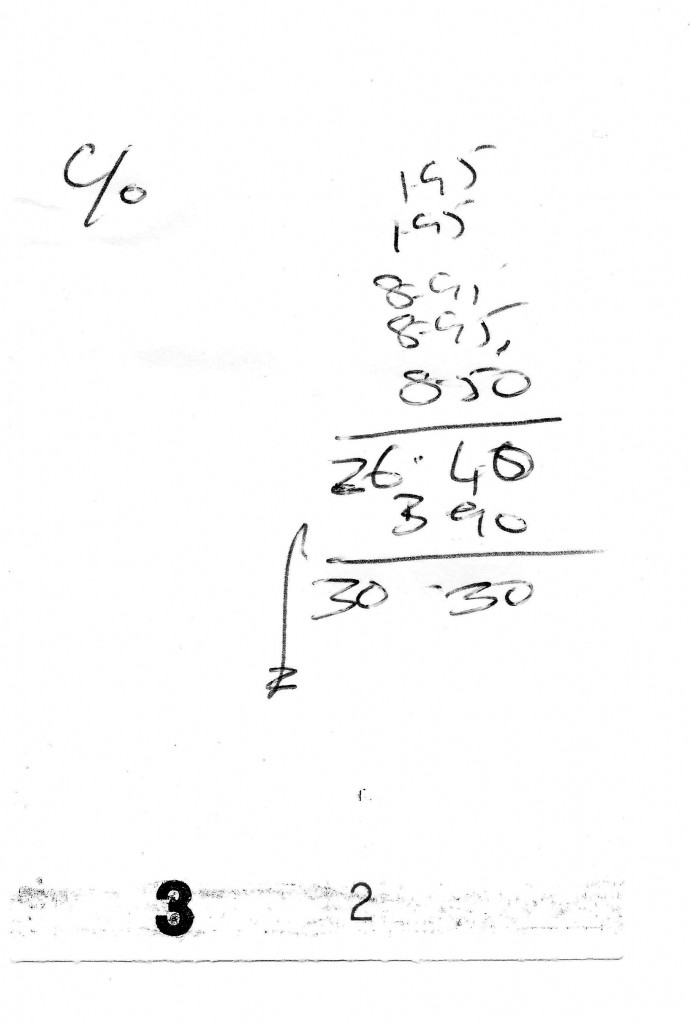 C/o
1.95
1.95
8.95
8.95
8.50
26.40
3 90
£30.30
3 2